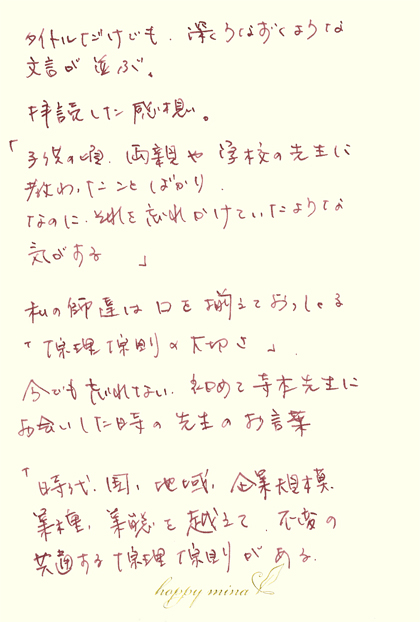 タイトルだけでも、深くうなずくような
文言が並ぶ。
拝読した感想。
「子供の頃、両親や学校の先生に
教わったことばかり、
なのに、それを忘れかけていたような
気がする 」
私の師達は口を揃えておっしゃる
「原理原則の大切さ」、
今でも忘れない、初めて寺本先生に
お会いした時の先生のお言葉
「時代、国、地域、企業規模、
業種、業態を越えて、不変の
共通する原理原則がある、
happy mina